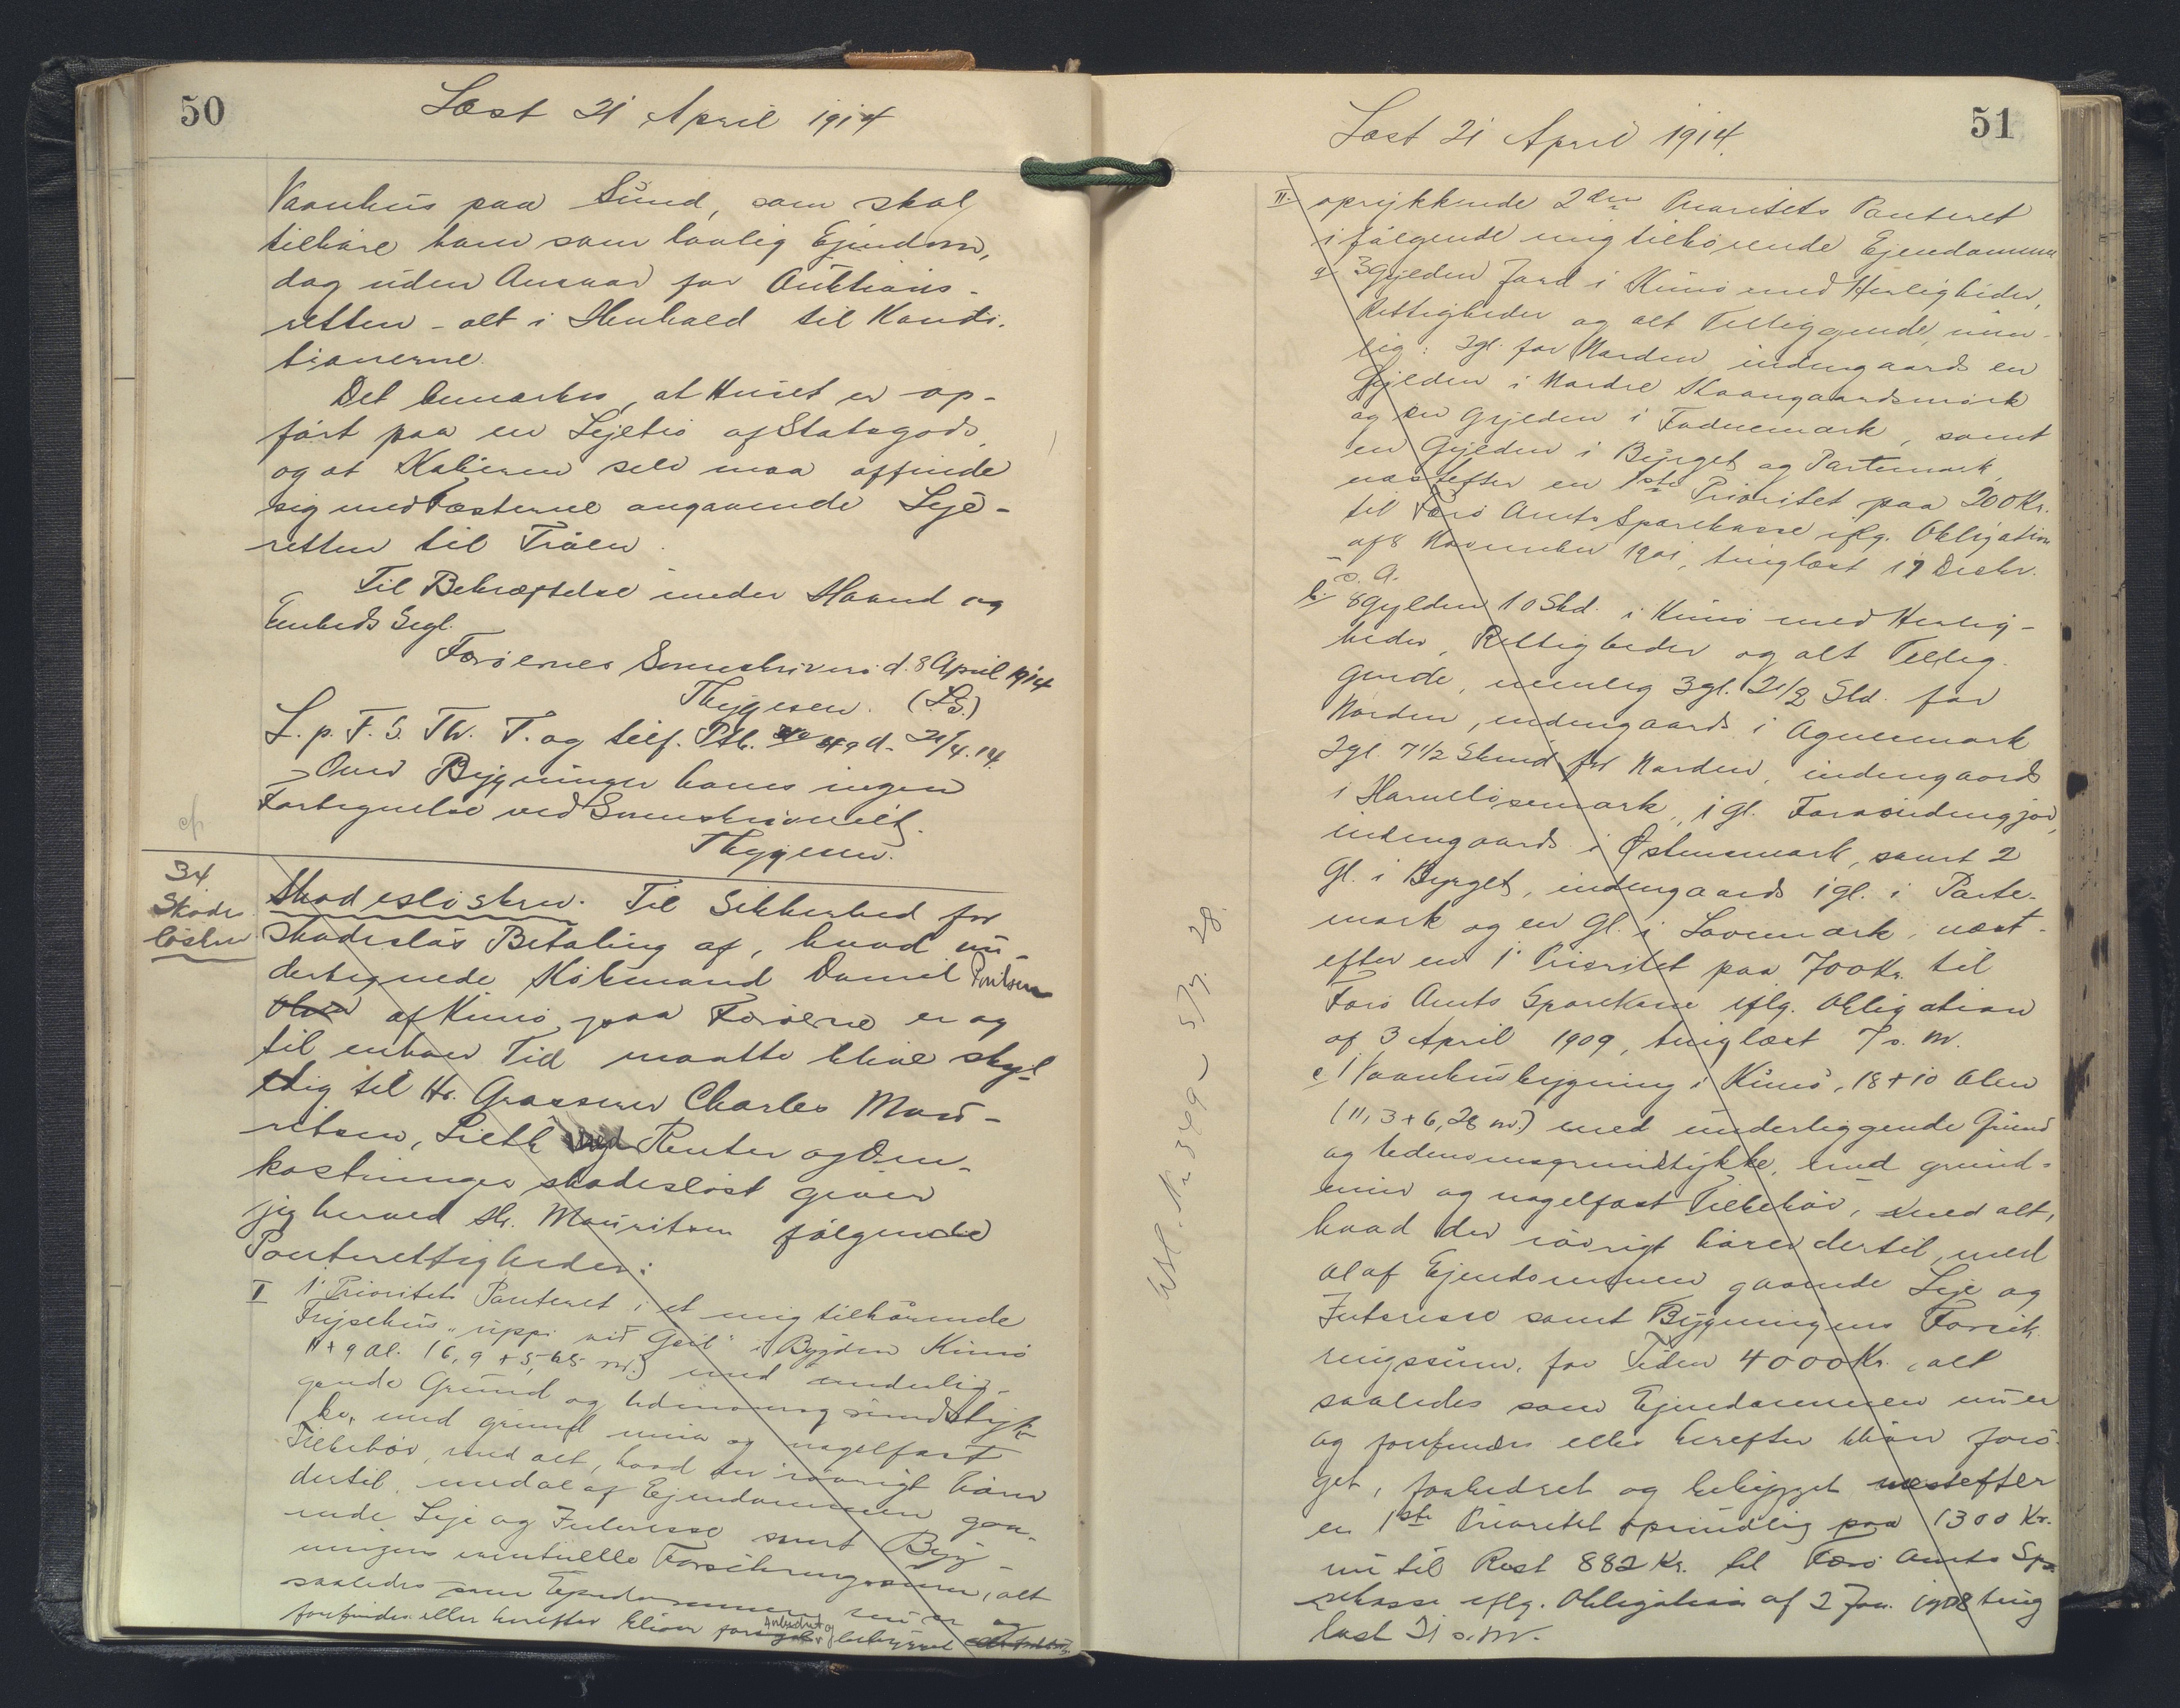 50
Læst 21 April 1914
Vaanhus paa Sund, som skal
tilhøre ham som lovlig Ejendom,
dog uden Ansvar for Auktions-
retten - alt i Henhold til Kondi-
tionerne.
Det bemærkes, at Huset er op-
ført paa en Lejetrø af Statsgods,
og at Køberen selv maa affinde
sig med Fæsterne angaaende Leje-
retten til Trøen.
Til Bekræftelse under Haand og
Embeds Segl.
Færøernes Sorenskriveri d. 8 April 1914
Thygesen. (L.S.)
L. p. F. S. Th. T. og tilf. Ptb. 349 d. 21/4.14.
Over Bygninger haves ingen
Fortegnelse ved Sorenskriveriet.
Thygesen.
34
Skades
løsbrev
Skadesløsbrev. Til Sikkerhed for
skadesløs Betaling af, hvad un-
dertegnede Købmand Daniel Poulsen
af Kunø paa Færøerne er og
til enhver Tid maatte blive skyl-
dig til Hr. Grosserer Charles Mou-
ritsen, Lieth med Renter og Om-
kostninger skadesløst giver
jeg herved Hr. Mouritsen følgende
Panterettigheder:
I 1' Prioritets Panteret i et mig tilhørende
Frysehus "uppi við Geil" i Bygden Kunø
11 + 9 Al. (6,9 + 5,65 m.) med underlig-
gende Grund og Udenomsgrundstyk-
ke, med grund mur og nagelfast
Tilbehør, med alt, hvad der iøvrigt hører
dertil, med al af Ejendommen gaa-
ende Leje og Interesse samt Byg-
ningens eventuelle Forsikringssum, alt
saaledes som Ejendommen nu er og
forefindes eller herefter bliver forbedret og bebygget
51
Læst 21 April 1914.
II. oprykkende 2den Prioritets Panteret
i følgende mig tilhørende Ejendomme
a/ 3 Gylden Jord i Kunø med Herligheder,
Rettigheder og alt Tilliggende, nem-
lig: 2gl. for Norden indengaards en
Gylden i Nordre Skaangaardsmark
og en Gylden i Fadnemark, samt
en Gylden i Bürget og Partemark,
næstefter en 1ste Prioritet paa 200 Kr.
til Færø Amts Sparekasse iflg. Obligation
af 8 November 1901, tinglæst 17 Decbr.
s. A.
b. 8 Gylden 10 Skd. i Kunø med Herlig-
heder, Rettigheder og alt Tillig-
gende, nemlig 3gl. 2 1/2 Skd. for
Norden, indengaards i Agnemark
2gl. 7 1/2 Skind for Norden, indengaards
i Harnelisemark, 1 gl.
indengaards i Østmemark, samt 2
Gl. i Byrget, indengaards 1 gl. i Parte-
mark og en Gl. i Lovemark, næst-
efter en 1' Prioritet paa 700 Kr. til
Færø Amts Sparekasse iflg. Obligation
af 3 April 1909, tinglæst 7 s. M.
c/ 1 Vaanhusbygning i Kunø, 18 + 10 Alen
(11,3 + 6,28 m.) med underliggende Grund
og Udenomsgrundstykke, med grund-
mur og nagelfast Tilbehør, med alt,
hvad der iøvrigt hører dertil, med
al af Ejendommen gaaende Leje og
Interesse samt Bygningens Forsik-
ringssum, for Tiden 4000 Kr., alt
saaledes som Ejendommen nu er
og forefindes eller herefter bliver forø-
get, forbedret og bebygget næstefter
en 1ste Prioritet oprindelig paa 1300 Kr.
nu til Rest 882 Kr. til Færø Amts Spa-
rekasse iflg. Obligation af 2 Jan. 1908 ting
læst 21 s. M.